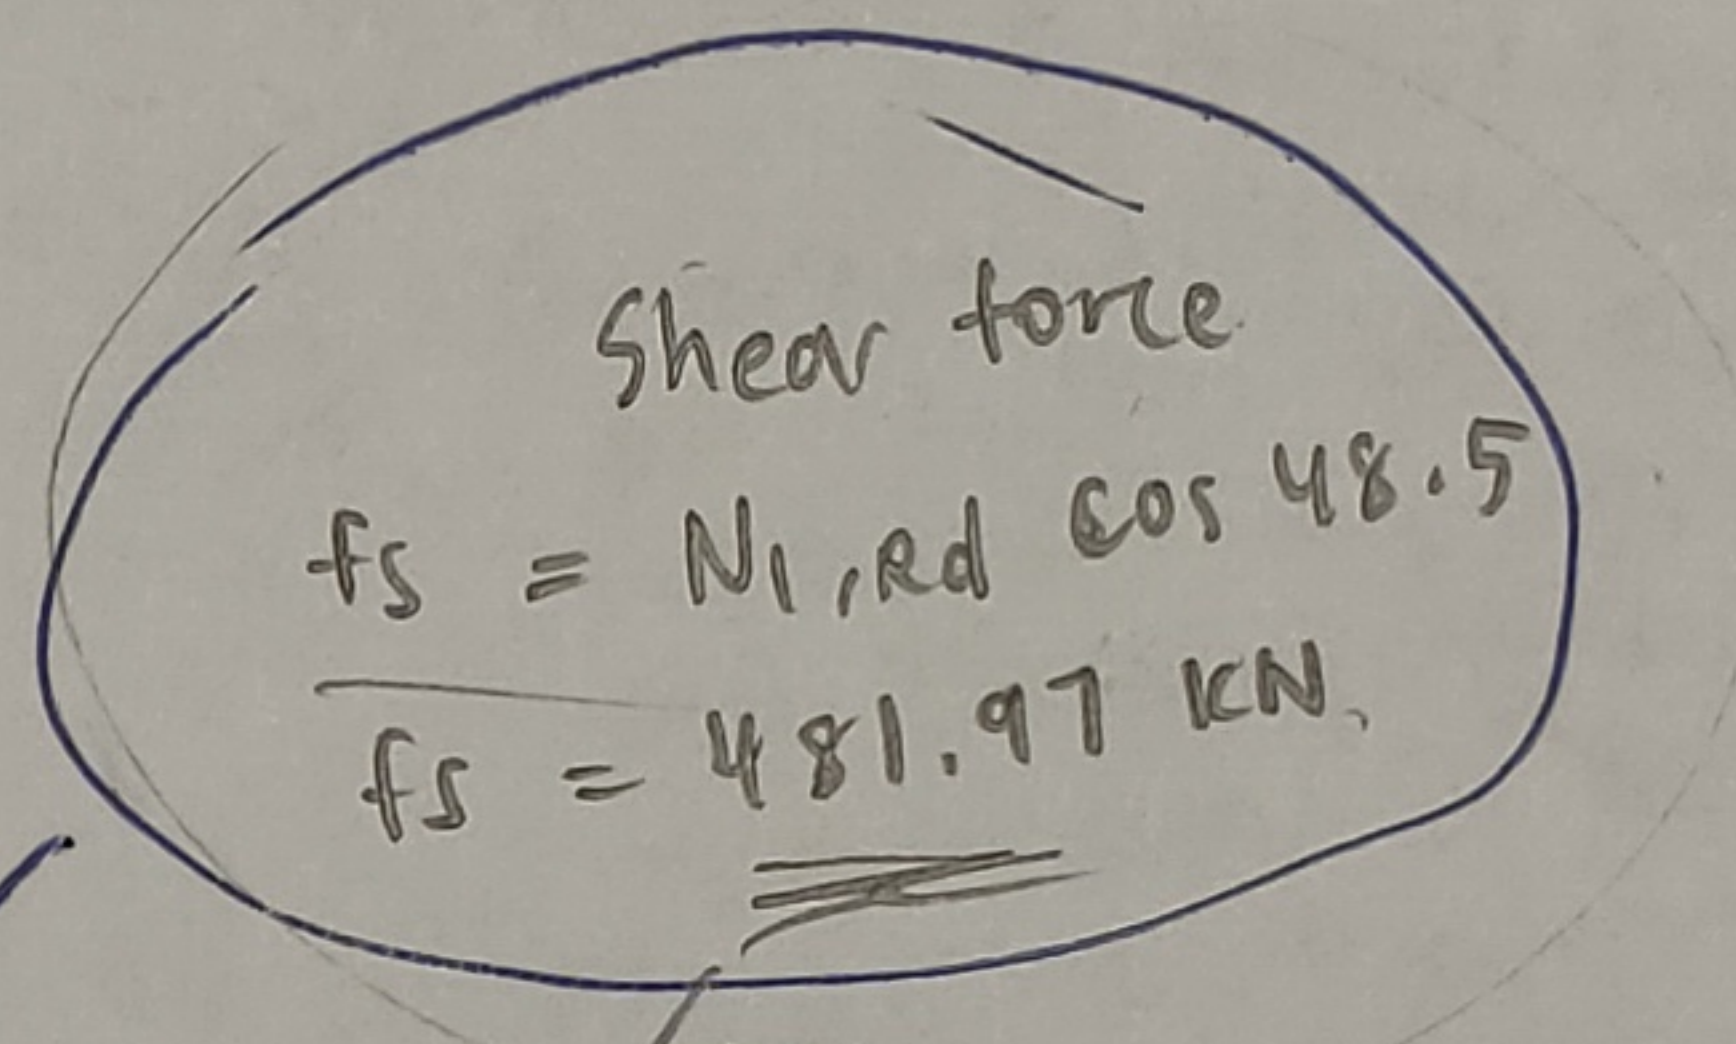 Shear force
fs = N1,Rd cos 48.5
fs = 481.97 KN.